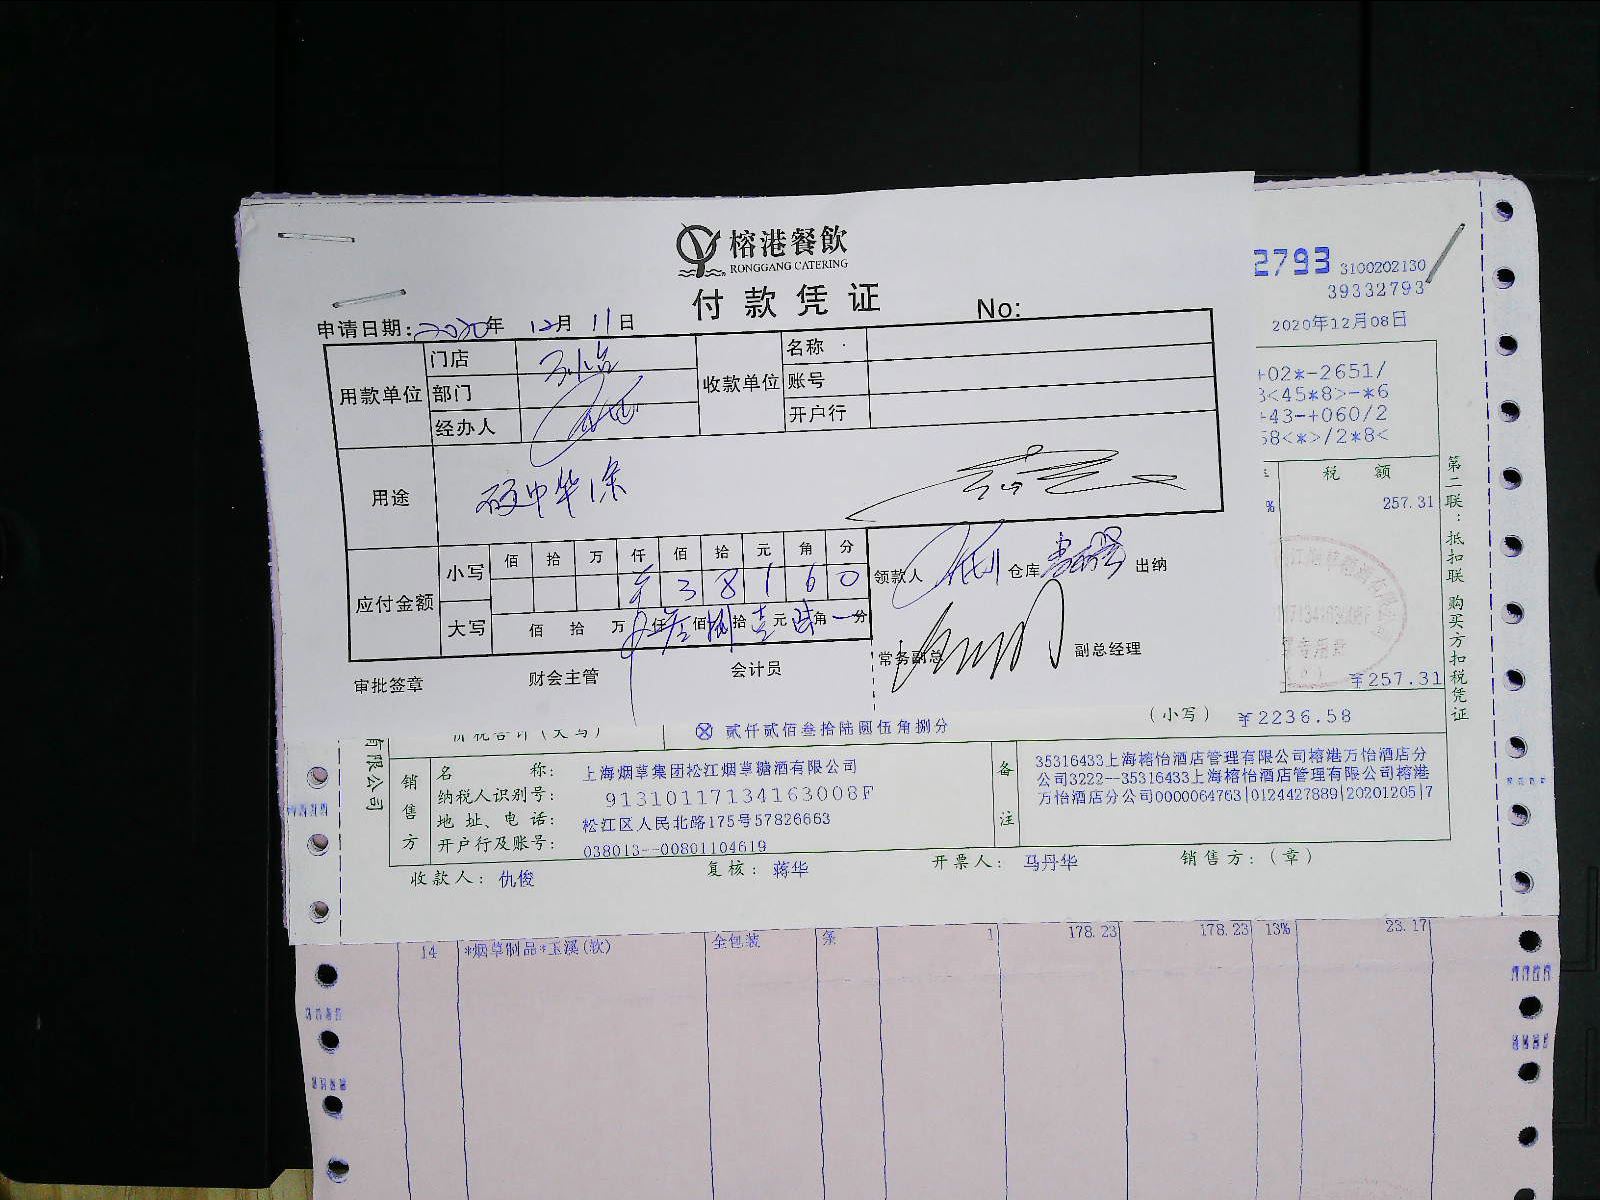 榕港餐飲
RONGGANG CATERING
付款凭证
No:
申请日期: 2020年 12月 11日
用款单位
门店
部门
经办人
收款单位
名称
账号
开户行
用途
硬中华1条
应付金额
小写
佰 拾 万 仟 佰 拾 元 角 分
¥ 3 8 1 6 0
大写
佰 拾 万 仟 叁佰 捌拾 壹元 陆角 一分
领款人
仓库
出纳
常务副总
副总经理
审批签章
财会主管
会计员
2793
3100202130
39332793
2020年12月08日
+02*-2651/
3<45*8>-*6
-43-+060/2
58<*>/2*8<
税 额
%
257.31
¥257.31
第二联：抵扣联 购买方扣税凭证
价税合计(大写)
ⓧ 贰仟贰佰叁拾陆圆伍角捌分
(小写) ¥2236.58
有限公司
销售方
名 称: 上海烟草集团松江烟草糖酒有限公司
纳税人识别号: 91310117134163008F
地 址、电 话: 松江区人民北路175号57826663
开户行及账号: 038013--00801104619
备注
35316433上海榕怡酒店管理有限公司榕港万怡酒店分
公司3222--35316433上海榕怡酒店管理有限公司榕港
万怡酒店分公司0000064763|0124427889|20201205|7
收款人: 仇俊
复核: 蒋华
开票人: 马丹华
销售方:(章)
14 *烟草制品*玉溪(软) 全包装 条 1 178.23 178.23 13% 23.17